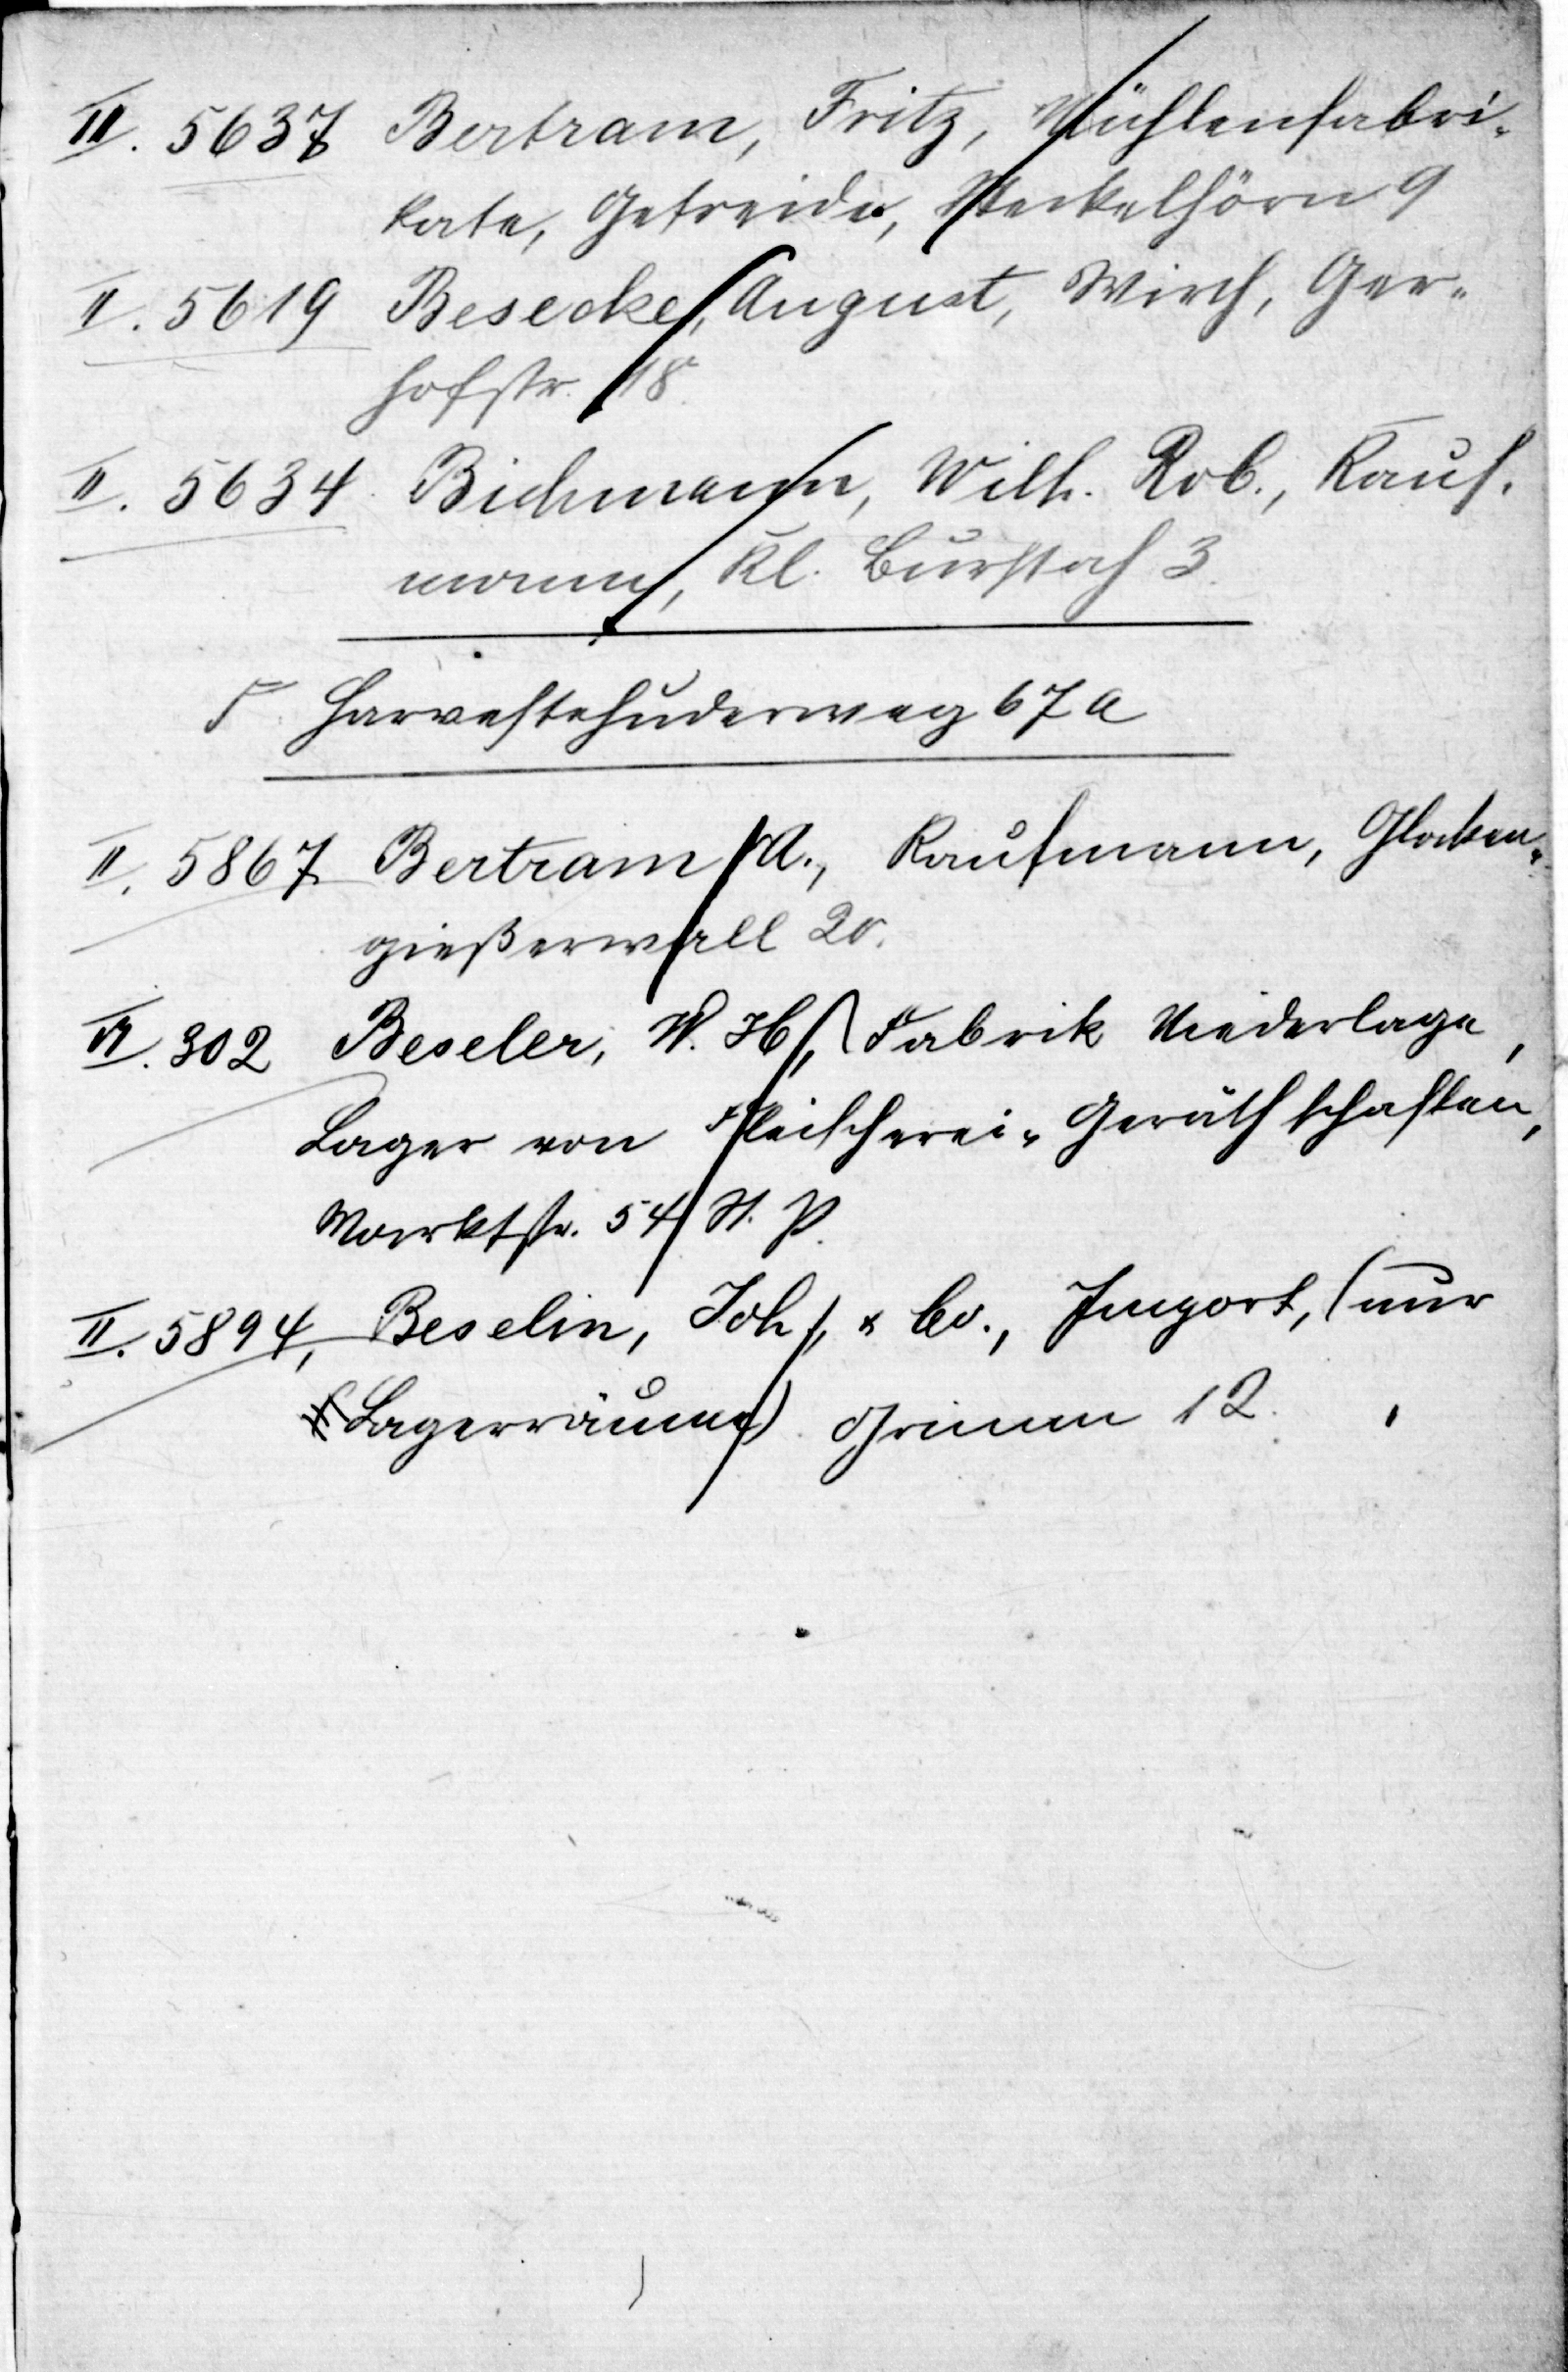 III. 5637 Bertram, Fritz, Mühlenfabri-
kate, Getreide, Steckelhörn 9
II. 5619 Besecke, August, Wirth, Ger-
hofstr. 18.
II. 5634 Bichmann, Wilh. Rob., Kauf-
mann, Kl. Burstah 3.
F. Harvestehuderweg 67 a
II. 5867 Bertram A., Kaufmann, Glocken-
gießerwall 20.
VI. 302 Beseler, W. H., Fabrik Niederlage,
Lager von Fleischerei-Geräthschaften,
Marktstr. 54 St. P.
II. 5894, Beselin, Joh., & Co., Import, (nur
Lagerräume) Grimm 12.